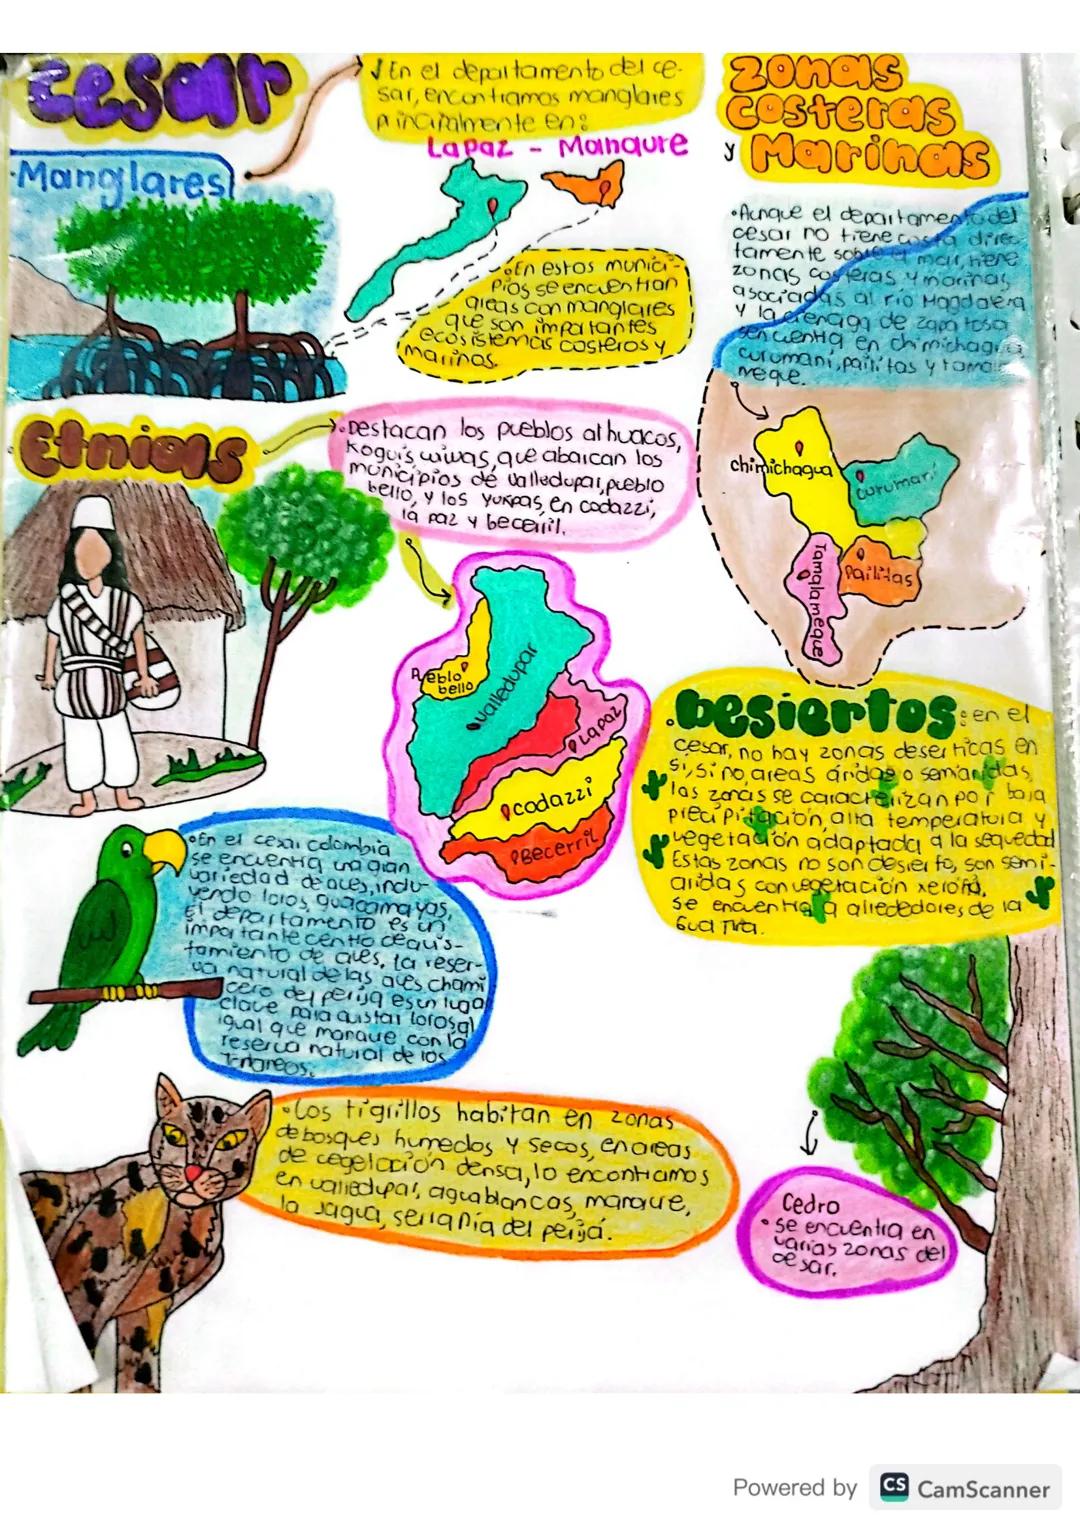 Cesar
✓En el departamento del ce-
sar, encontramos manglares
principalmente en:
Lapaz - Manaure
Manglares
•En estos munici-
pios se encuentran
areas con manglares
que son importantes
ecosistemas costeros y
marinos.
zonas
costeras
y Marinas
•Aunque el departamento del
cesar no tiene costa direc
tamente sobre el mar, tiene
zonas costeras y marinas
asociadas al río Magdalena
y la cienaga de zapatosa
sencuentra en chimichagua
curumaní, pailitas y tamala
meque.
chimichagua
curumari
Tamalameque
Pailitas
Etnias
•Destacan los pueblos alhuacos,
koguis, wiwas, que abarcan los
municipios de valledupar, pueblo
bello, y los yukpas, en codazzi,
la paz y becerril.
Pueblo
bello
valledupar
Lapaz
codazzi
Becerril
•Desiertos: en el
cesar, no hay zonas deserticas en
si, si no, areas áridas o semiaridas,
las zonas se caracterizan por baja
precipitación, alta temperatura y
vegetación adaptada a la sequedad
Estas zonas no son desierto, son semi-
aridas con vegetación
se encuentra a alrededores de la
Guajira.
•En el cesar colombia
se encuentra una gran
variedad de aves, inclu-
yendo loros, guacamayas,
El departamento es un
importante centro de avis-
tamiento de aves, la reser-
va natural de las aves chami
cero del perijá es un luga
clave para avistar loros al
igual que manaure con la
reserva natural de los
•Los tigrillos habitan en zonas
de bosques humedos y secos, en areas
de cegetación densa, lo encontramos
en valledupar, aguablancas, manaure,
la Jagua, serranía del perijá.
Cedro
•se encuentra en
varias zonas del
cesar.
Powered by CS CamScanner